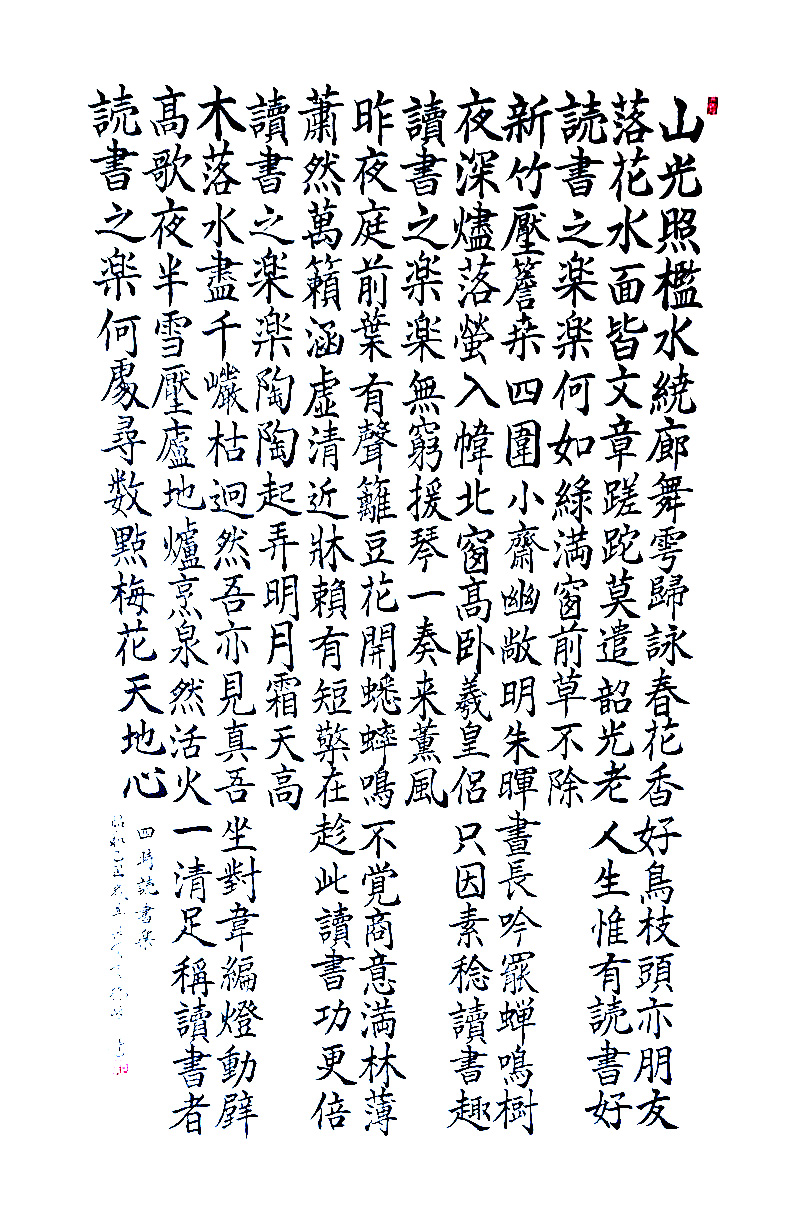 山光照檻水繞廊舞雩歸詠春花香好鳥枝頭亦朋友
落花水面皆文章蹉跎莫遣韶光老人生惟有読書好
読書之楽楽何如綠満窗前草不除
新竹壓簷桒四圍小齋幽敞明朱暉晝長吟罷蝉鳴樹
夜深燼落螢入幃北窗髙卧羲皇侶只因素稔讀書趣
讀書之楽楽無窮援琴一奏来薫風
昨夜庭前葉有聲籬豆花開蟋蟀鳴不覚商意満林薄
蕭然萬籟涵虚清近牀賴有短檠在趁此讀書功更倍
讀書之楽楽陶陶起弄明月霜天高
木落水盡千巗枯迥然吾亦見真吾坐對韋編燈動壁
髙歌夜半雪壓廬地爐烹泉然活火一清足稱讀書者
読書之楽何處尋数點梅花天地心
四時読書楽
昭和乙丑